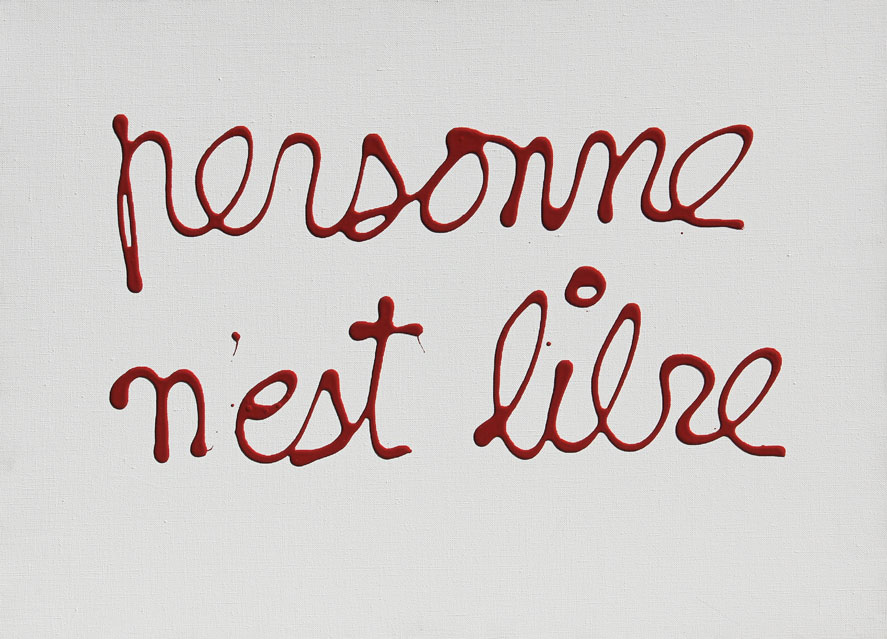 personne
n'est libre